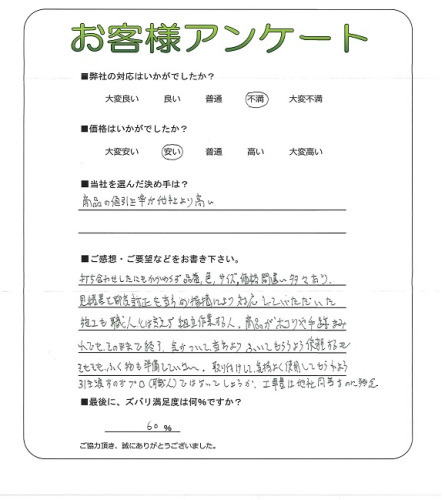 お客様アンケート
■弊社の対応はいかがでしたか?
大変良い 良い 普通 不満 大変不満
■価格はいかがでしたか?
大変安い 安い 普通 高い 大変高い
■当社を選んだ決め手は?
商品の値引き率が他社より高い
■ご感想・ご要望などをお書き下さい。
打ち合わせしたにもかかわらず品番、色、サイズ、価格間違い多々あり、
見積書を都度訂正を当方の指摘により対応していただいた
施工も職人とは言えず組立作業する人、商品がホコリや手あかまみ
れでも、そのままで終了、気がついて当方よりふいてもらうよう依頼するも
それでも、ふく物も準備していない。取り付けして気持よく使用してもらうよう
引き渡すのがプロ(職人)ではないでしょうか、工事費は他社同等なのに残念
■最後に、ズバリ満足度は何%ですか?
60 %
ご協力頂き、誠にありがとうございました。